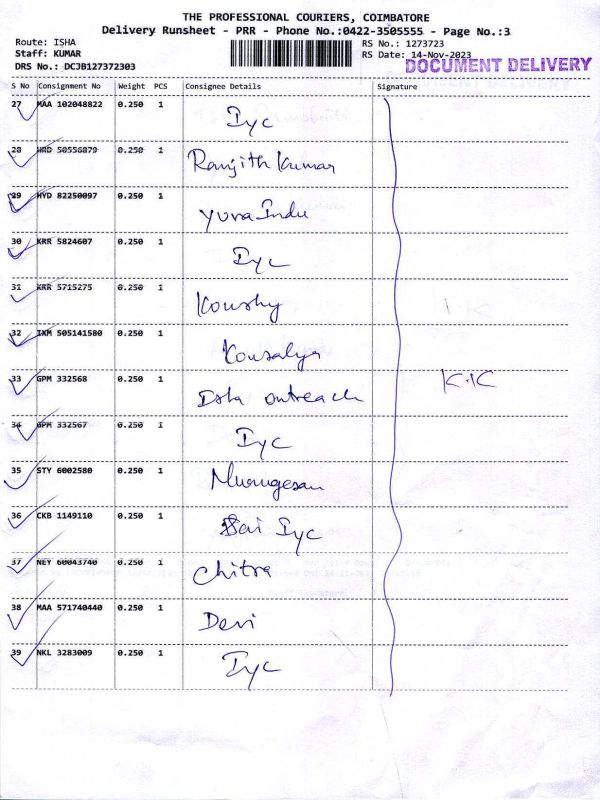 THE PROFESSIONAL COURIERS, COIMBATORE
Delivery Runsheet - PRR - Phone No.:0422-3505555 - Page No.:3
Route: ISHA RS No.: 1273723
Staff: KUMAR RS Date: 14-Nov-2023
DRS No.: DCJB127372303 DOCUMENT DELIVERY
S No Consignment No Weight PCS Consignee Details Signature
27 MAA 102048822 0.250 1 Iyc
28 HRD 50556879 0.250 1 Ranjith Kumar
29 HYD 82250097 0.250 1 Yuva Indu
30 KRR 5824607 0.250 1 Iyc
31 KRR 5715275 0.250 1 Koushy
32 IXM 505141580 0.250 1 Kousalya
33 GPM 332568 0.250 1 Isha outreach K.K
34 GPM 332567 0.250 1 Iyc
35 STY 6002580 0.250 1 Murugesan
36 CKB 1149110 0.250 1 Sai Iyc
37 NEY 60043740 0.250 1 Chitra
38 MAA 571740440 0.250 1 Devi
39 NKL 3283009 0.250 1 Iyc